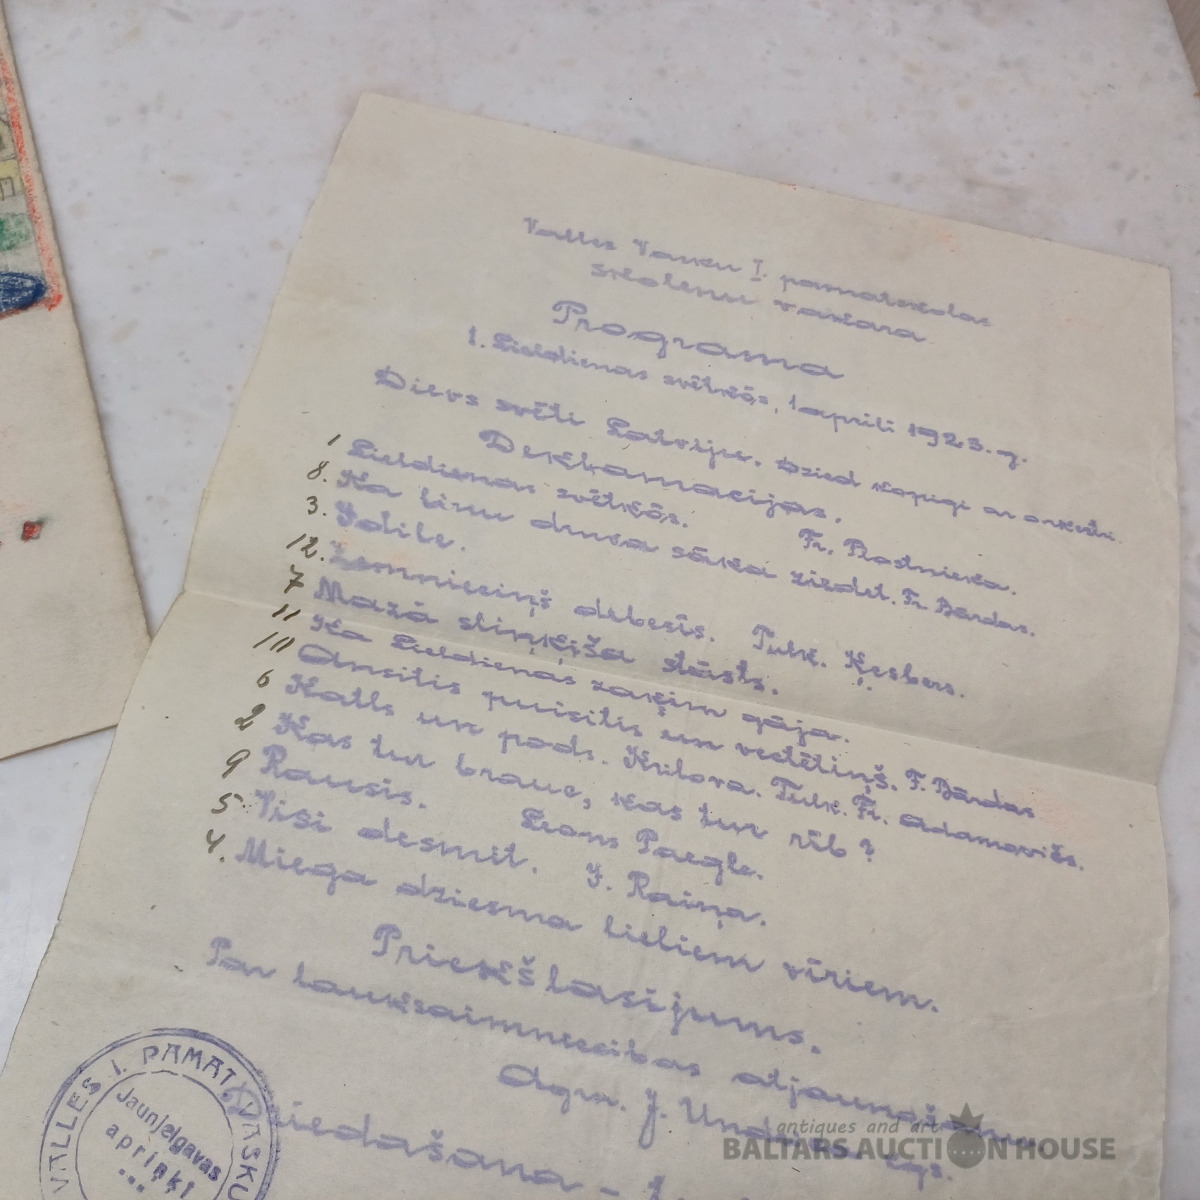 Valles Vasku I. pamatskolas
skolēnu vakara
Programa
1. Lieldienas svētkōs, 1 aprīlī 1923. g.
Dievs svētī Latviju. Dzied kopīgi ar orķestri.
Deklamacijas.
1 Lieldienas svētkōs. Fr. Plostnieka.
8. Ka linu druva sāka ziedet. Fr. Bārdas.
3. Idile.
12. debesīs. Tulk. Ķesbers.
7 Mazā sliņķiša stāsts.
11 Ka Lieldienas zaķim gāja.
10 Ansītis puisītis un vedētiņš. F. Bārdas
6 Katls un pods. Krilova. Tulk. Fr. Adamovičs.
2 Kas tur brauc, kas tur rīb?
9 Rausis. Leons Paegle.
5. Visi desmit. J. Raiņa.
4. Miega dziesma lieliem vīriem.
Priekšlasijums.
Par lauksaimniecibas
Agr. J. kgs.
VALLES I. PAMAT VASKU
Jaunjelgavas
apriņķī
antiques and art
BALTARS AUCTION HOUSE